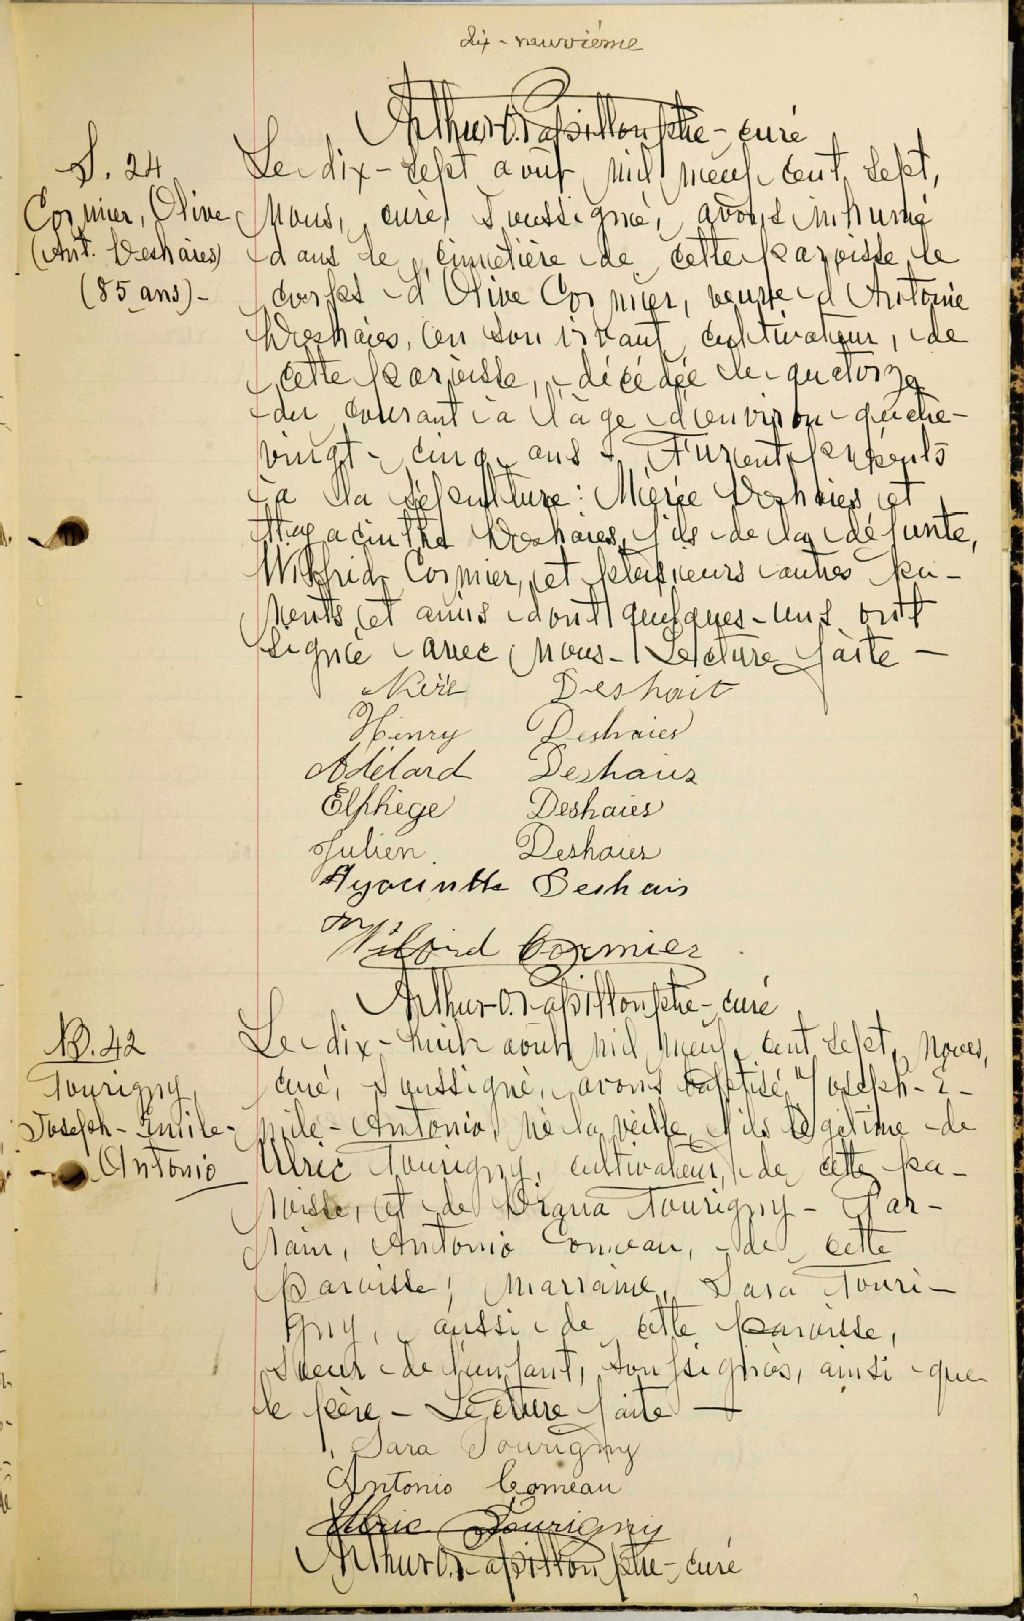 dix-neuvième
Arthur O. Papillon ptre-curé
S. 24
Cormier, Olive
(Ant. Deshaies)
(85 ans)-
Le dix-sept août mil neuf cent sept,
nous, curé soussigné, avons inhumé
dans le cimetière de cette paroisse le
corps d'Olive Cormier, veuve d'Antoine
Deshaies, en son vivant, cultivateur, de
cette paroisse, décédée le quatorze
du courant à l'âge d'environ quatre-
vingt-cinq ans. Furent présents
à la sépulture: Deshaies et
Hyacinthe Deshaies, fils de la défunte,
Wilfrid Cormier, et plusieurs autres pa-
rents et amis dont quelques-uns ont
signé avec nous- Lecture faite —
Deshait
Henry Deshaies
Adélard Deshaies
Elphège Deshaies
Julien Deshaies
Hyacinthe Deshais
Cormier
Arthur O. Papillon ptre-curé
B. 42
Tourigny,
Joseph-Emile-
Antonio
Le dix-huit août mil neuf cent sept, nous,
curé, soussigné, avons baptisé Joseph-E-
mile-Antonio, né la veille, fils légitime de
Ulric Tourigny, cultivateur, de cette pa-
roisse, et de Diana Tourigny- Par-
rain, Antonio Comeau, de cette
paroisse; marraine, Sara Touri-
gny, aussi de cette paroisse,
soeur de l'enfant, soussignés, ainsi que
le père - Lecture faite —
Sara Tourigny
Antonio Comeau
Ulric Tourigny
Arthur O. Papillon ptre-curé